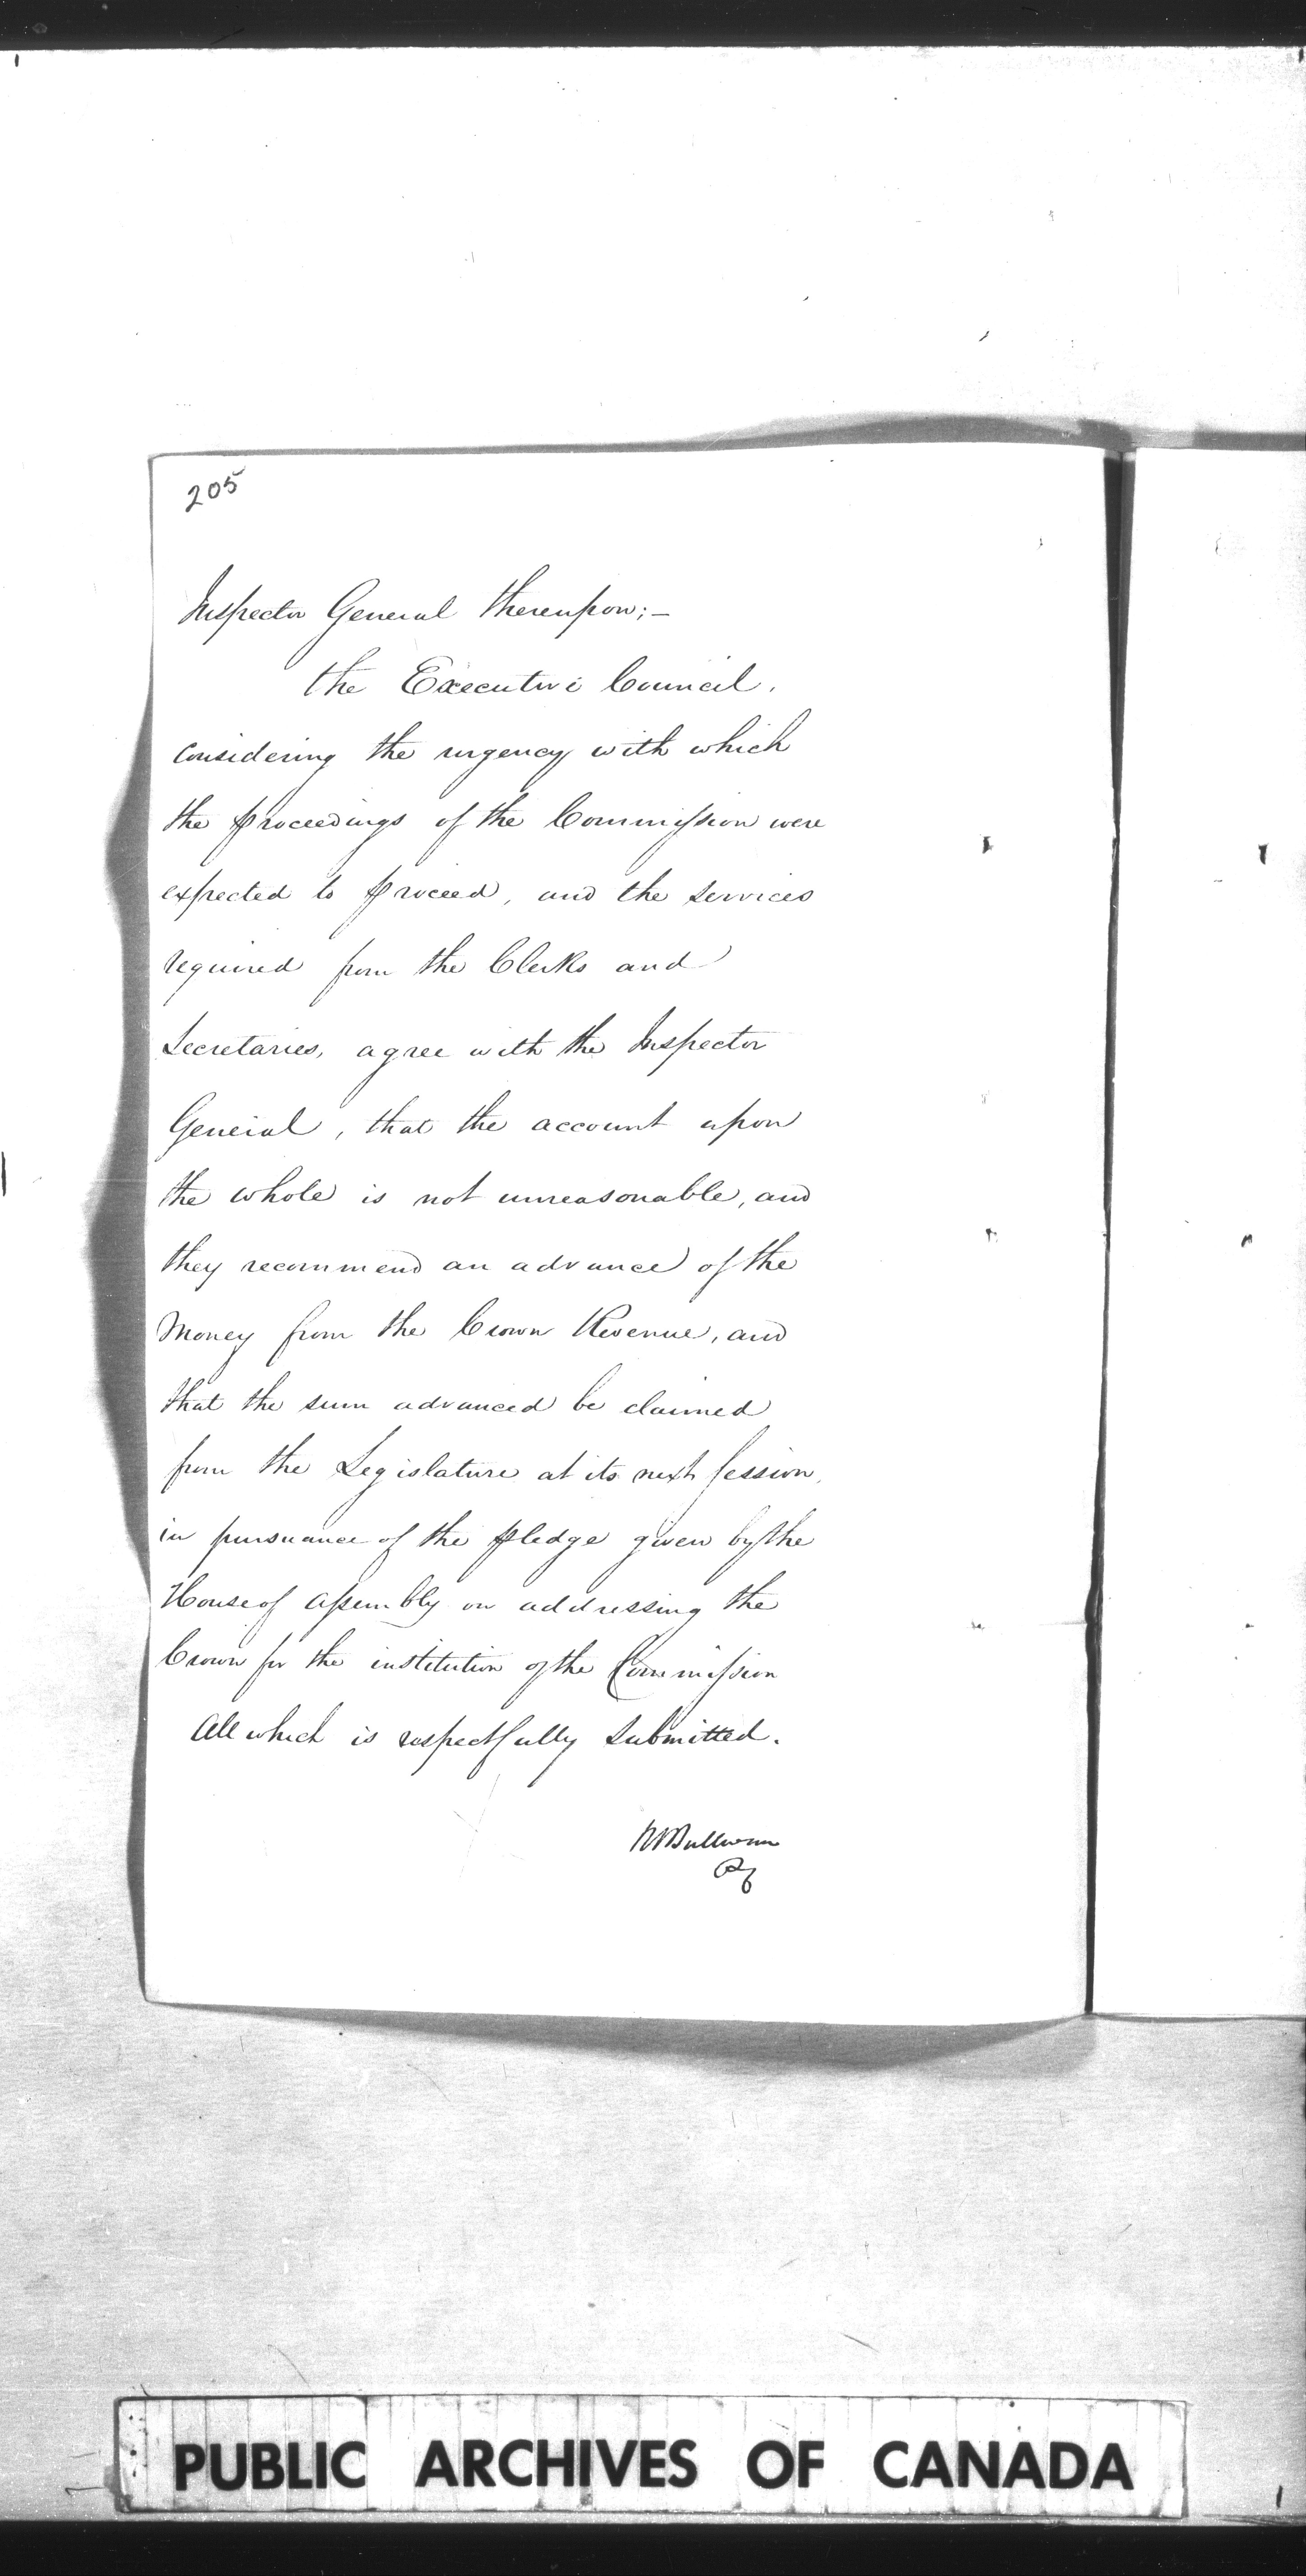 205
Inspector General thereupon; –
the Executive Council,
considering the urgency with which
the proceedings of the Commission were
expected to proceed, and the services
required from the Clerks and
Secretaries, agree with the Inspector
General, that the account upon
the whole is not unreasonable, and
they recommend an advance of the
Money from the Crown Revenue, and
that the sum advanced be claimed
from the Legislature at its next session,
in pursuance of the pledge given by the
House of Assembly on addressing the
Crown for the institution of the Commission
All which is respectfully submitted.
RB Sullivan
PUBLIC ARCHIVES OF CANADA